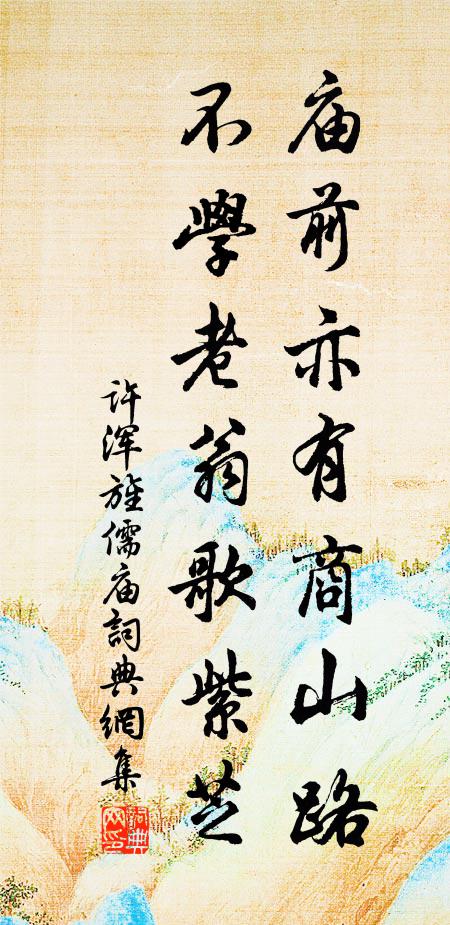 庙前亦有商山路
不學老翁歌紫芝
许浑旌儒庙詞典網集
詞典网印